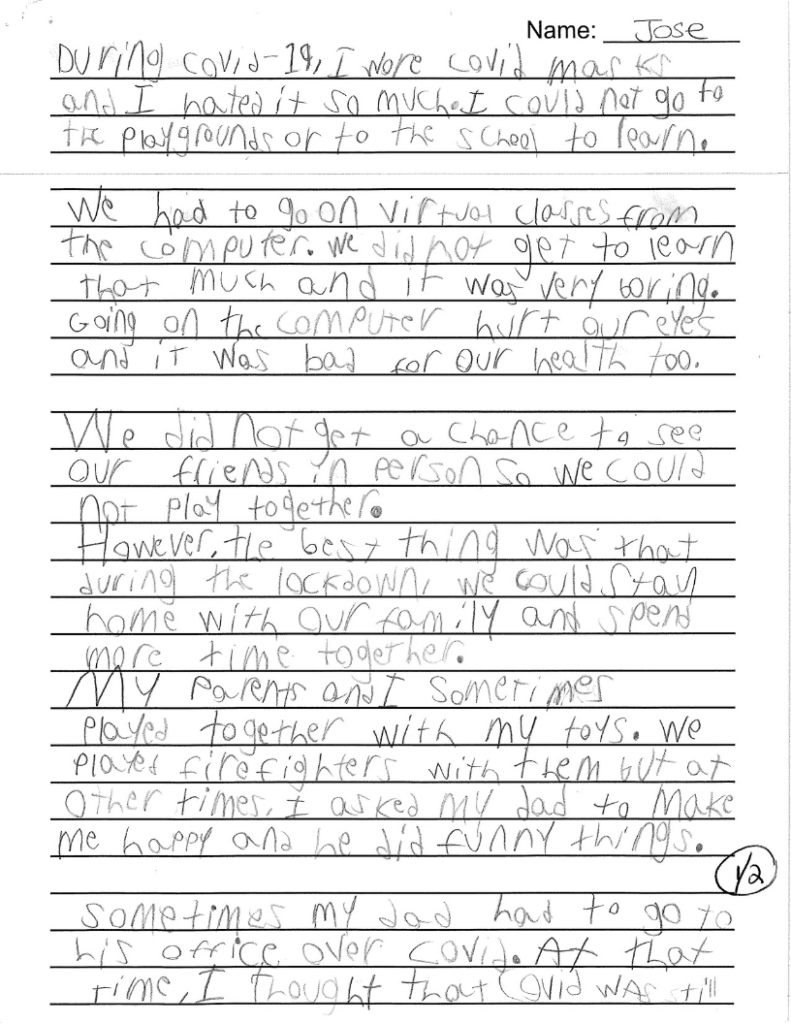 Name: Jose
During covid-19, I wore covid masks
and I hated it so much. I could not go to
the playgrounds or to the school to learn.
We had to go on virtual classes from
the computer. we did not get to learn
that much and it was very boring.
Going on the computer hurt our eyes
and it was bad for our health too.
We did not get a chance to see
our friends in person so we could
not play together.
However, the best thing was that
during the lockdown, we could stay
home with our family and spend
more time together.
My parents and I sometimes
played together with my toys. We
played firefighters with them but at
other times, I asked my dad to make
me happy and he did funny things.
1/2
Sometimes my dad had to go to
his office over covid. At that
time, I thought that Covid was still